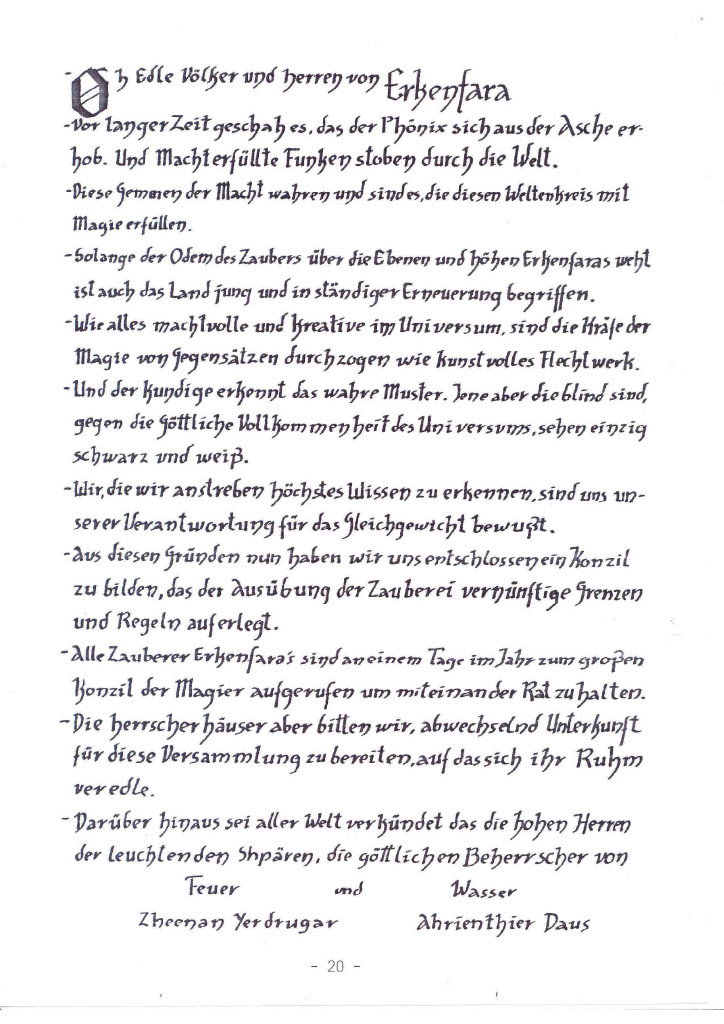 - Oh Edle Völker und Herren von Erkenfara
- Vor langer Zeit geschah es, das der Phönix sich aus der Asche er-
hob. Und Macht erfüllte Funken stoben durch die Welt.
- Diese Gemmen der Macht wahren und sind es, die diesen Weltenkreis mit
Magie erfüllen.
- Solange der Odem des Zaubers über die Ebenen und höhen Erkenfaras weht
ist auch das Land jung und in ständiger Erneuerung begriffen.
- Wie alles machtvolle und kreative im Universum, sind die Kräfe der
Magie von Gegensätzen durchzogen wie kunstvolles Flechtwerk.
- Und der kundige erkennt das wahre Muster. Jene aber die blind sind,
gegen die Göttliche Vollkommenheit des Universums, sehen einzig
schwarz und weiß.
- Wir, die wir anstreben höchstes Wissen zu erkennen, sind uns un-
serer Verantwortung für das Gleichgewicht bewußt.
- Aus diesen Gründen nun haben wir uns entschlossen ein Konzil
zu bilden, das der Ausübung der Zauberei vernünftige Grenzen
und Regeln auferlegt.
- Alle Zauberer Erkenfara's sind an einem Tage im Jahr zum großen
Konzil der Magier aufgerufen um miteinander Rat zu halten.
- Die herrscherhäuser aber bitten wir, abwechselnd Unterkunft
für diese Versammlung zu bereiten, auf das sich ihr Ruhm
veredle.
- Darüber hinaus sei aller Welt verkündet das die hohen Herren
der leuchtenden Shpären, die göttlichen Beherrscher von
Feuer und Wasser
Zheenan Yerdrugar Ahrienthier Daus
- 20 -